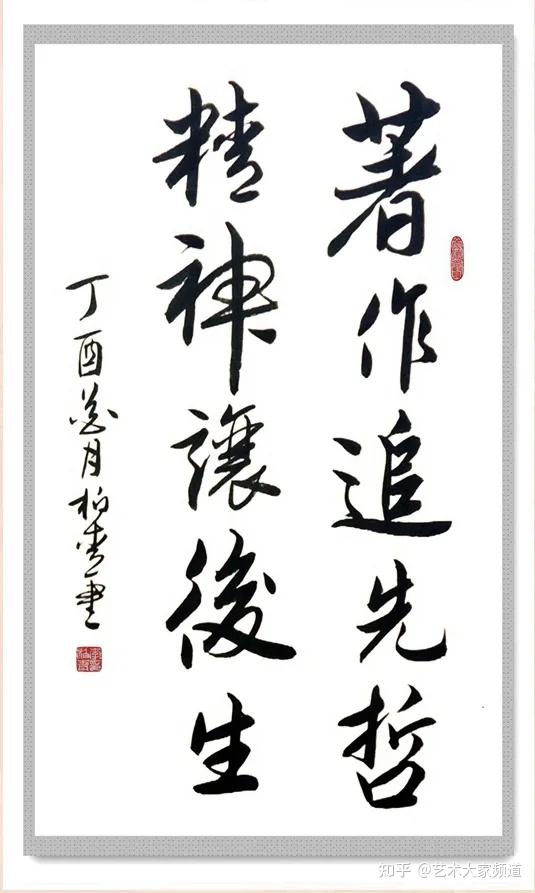 著作追先哲
精神讓後生
丁酉荷月柏青書
知乎 @艺术大家频道